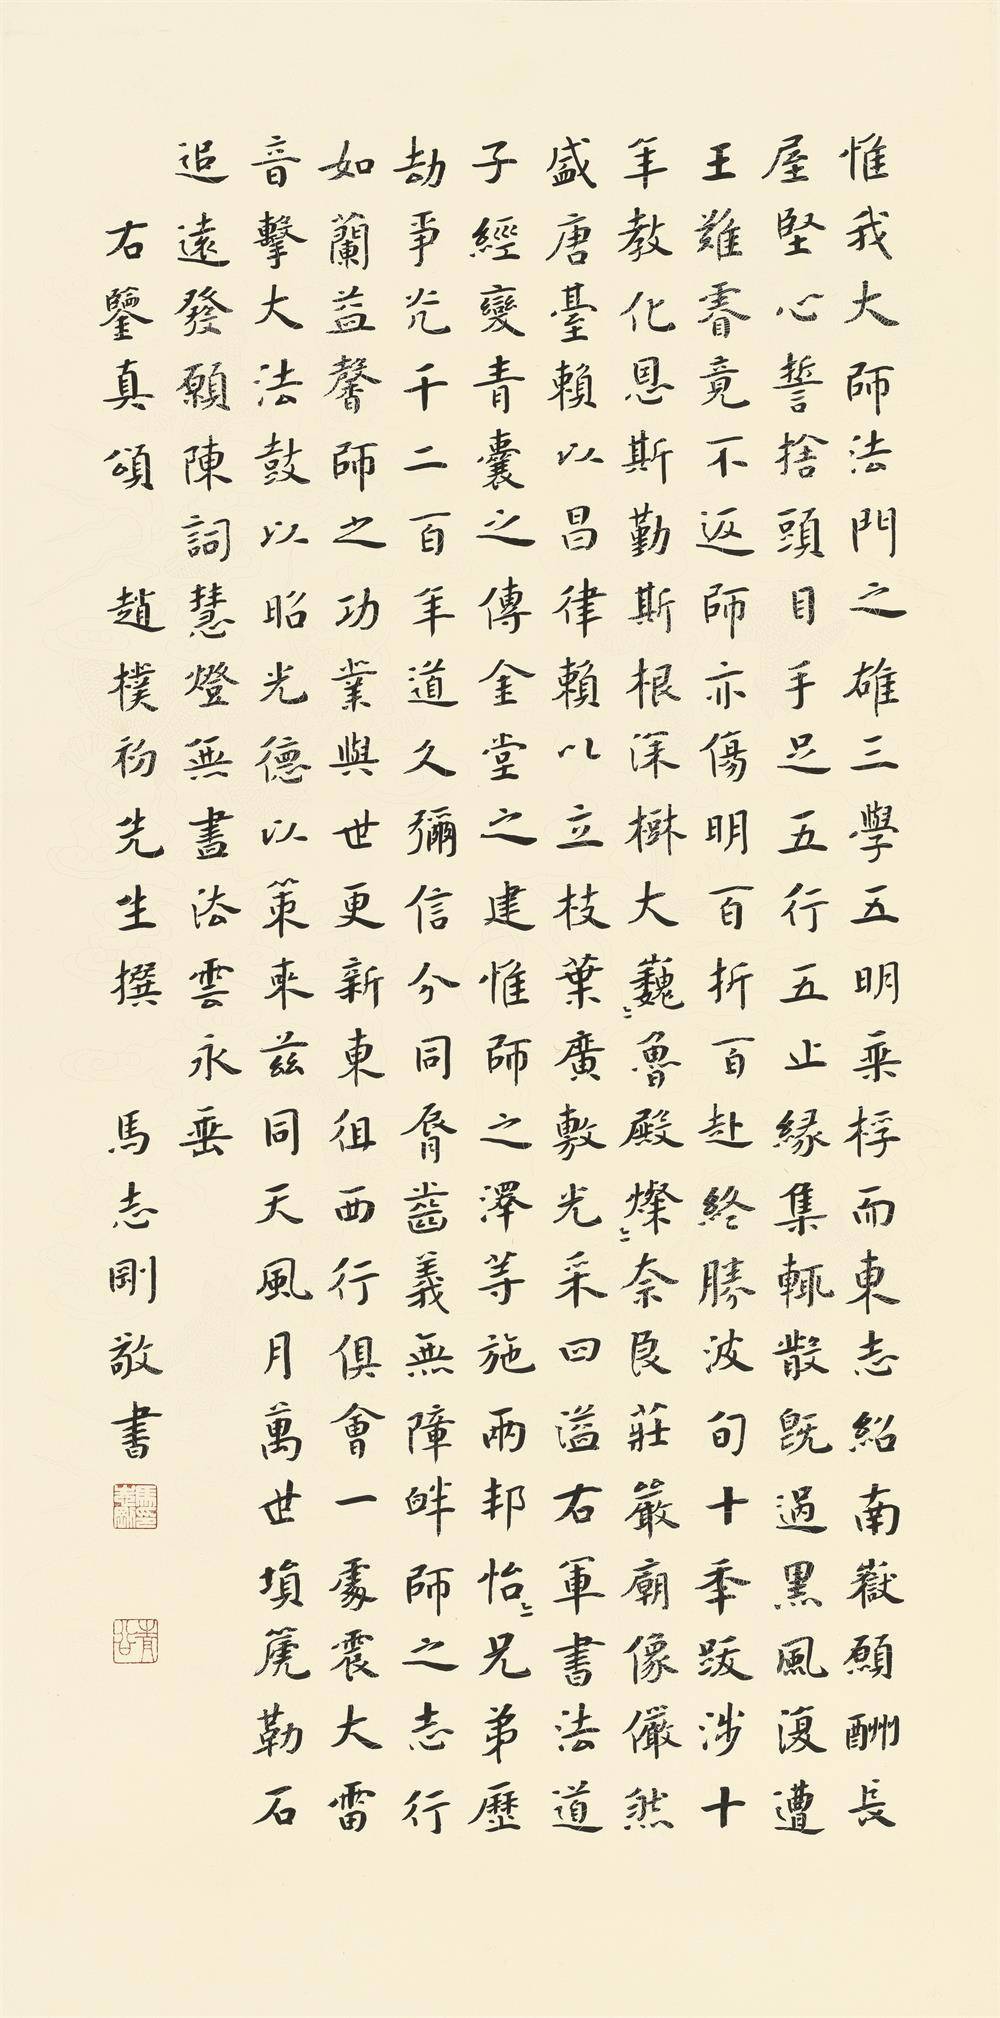 惟我大師法門之雄三學五明乘桴而東志紹南嶽願酬長
屋堅心誓捨頭目手足五行五止緣集輒散既過黑風復遭
王難睿竟不返師亦傷明百折百赴終勝波旬十季跋涉十
年教化恩斯勤斯根深樹大巍〻魯殿燦〻奈良莊嚴廟像儼然
盛唐臺賴以昌律賴以立枝葉廣敷光采四溢右軍書法道
子經變青囊之傳金堂之建惟師之澤等施兩邦怡〻兄弟歷
劫爭光千二百年道久彌信今同脣齒義無障畔師之志行
如蘭益馨師之功業與世更新東徂西行俱會一處震大雷
音擊大法鼓以昭光德以策來茲同天風月萬世塤篪勒石
追遠發願陳詞慧燈無盡法雲永垂
右鑒真頌 趙樸初先生撰 馬志剛敬書
馬志剛